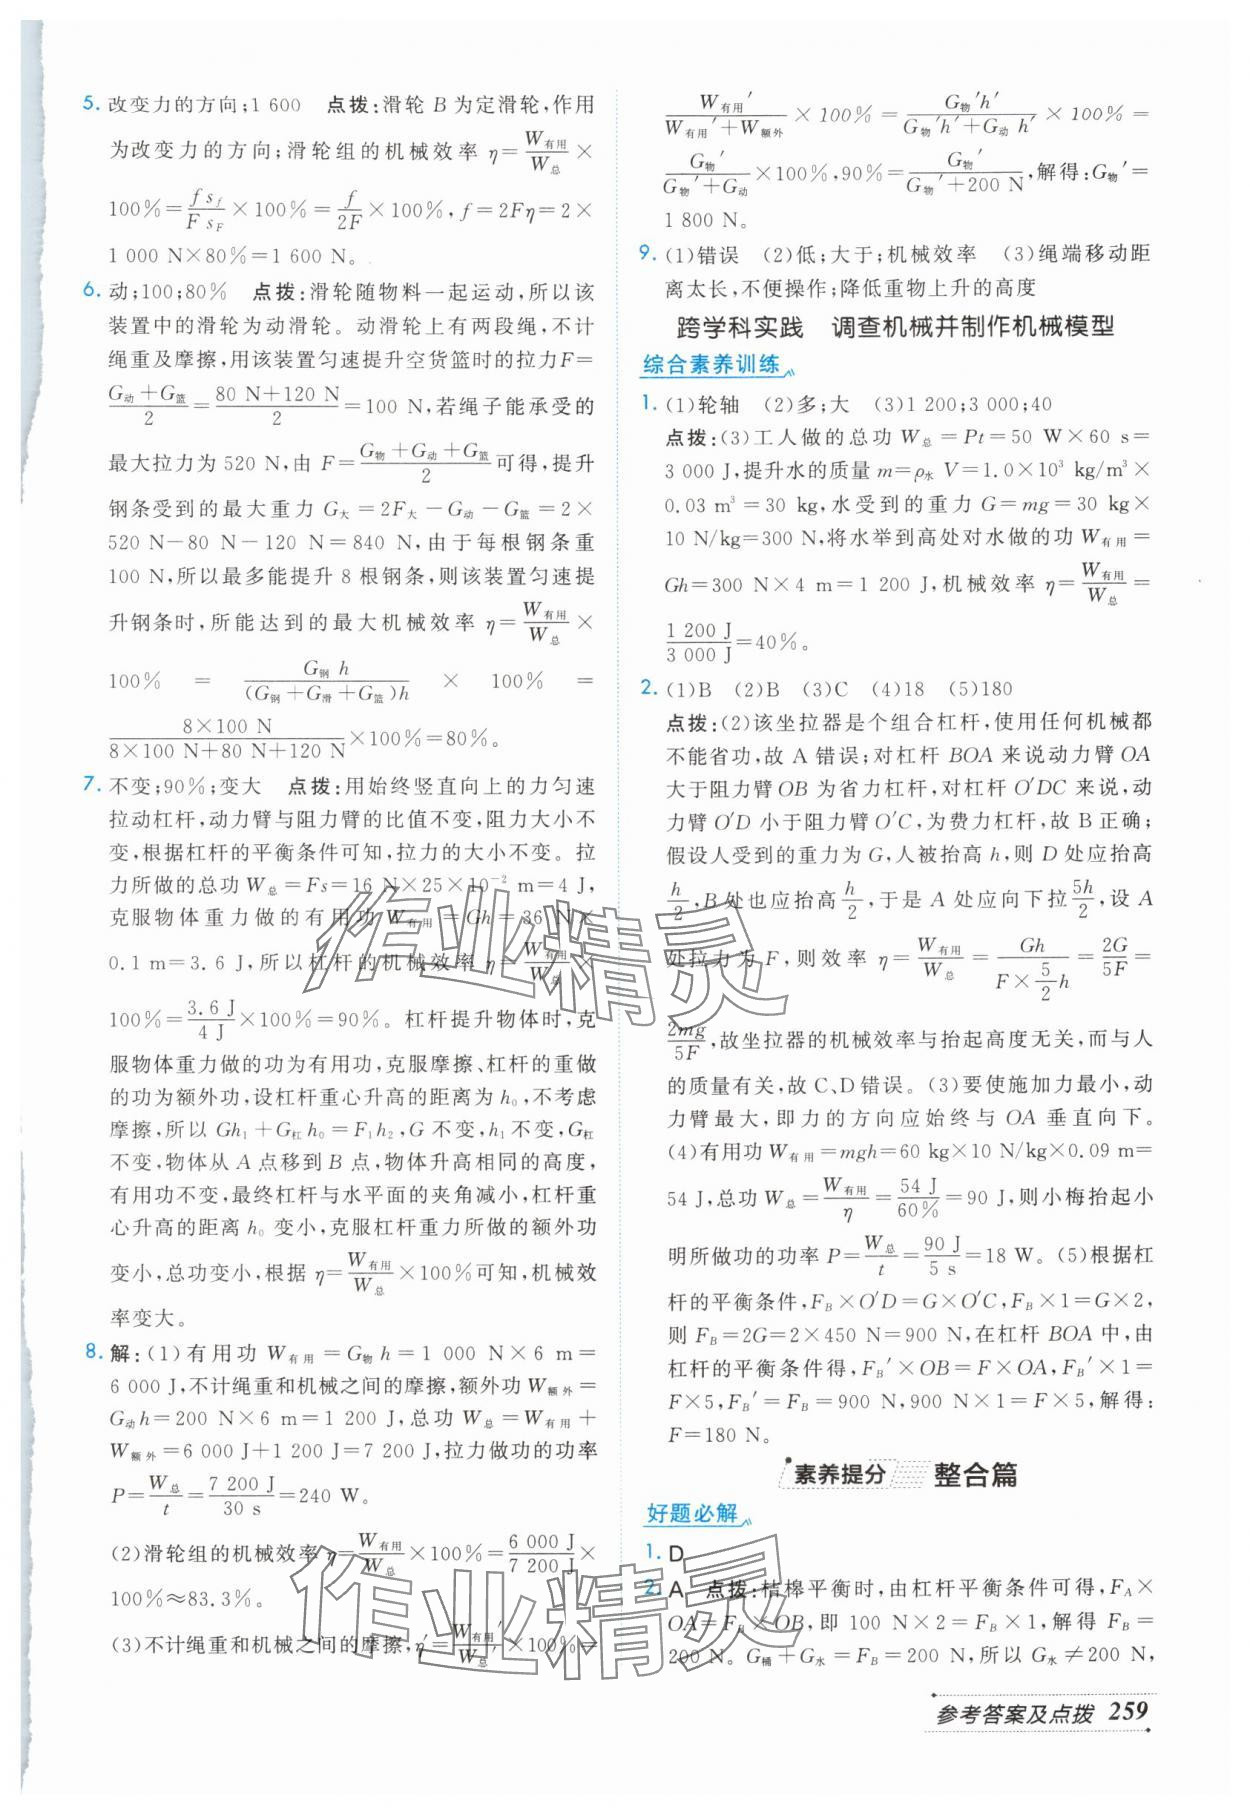 5. 改变力的方向;1 600　点拨:滑轮 B 为定滑轮,作用
为改变力的方向;滑轮组的机械效率 η=W有用/W总×
100%=f s_f/F s_F×100%=f/2F×100%,f=2Fη=2×
1 000 N×80%=1 600 N。
6. 动;100;80%　点拨:滑轮随物料一起运动,所以该
装置中的滑轮为动滑轮。动滑轮上有两段绳,不计
绳重及摩擦,用该装置匀速提升空货篮时的拉力F=
G动+G篮/2=80 N+120 N/2=100 N,若绳子能承受的
最大拉力为 520 N,由 F=G物+G动+G篮/2可得,提升
钢条受到的最大重力 G大=2F大-G动-G篮=2×
520 N-80 N-120 N=840 N,由于每根钢条重
100 N,所以最多能提升 8 根钢条,则该装置匀速提
升钢条时,所能达到的最大机械效率 η=W有用/W总×
100% = G钢 h/(G钢+G滑+G篮)h × 100% =
8×100 N/8×100 N+80 N+120 N×100%=80%。
7. 不变;90%;变大　点拨:用始终竖直向上的力匀速
拉动杠杆,动力臂与阻力臂的比值不变,阻力大小不
变,根据杠杆的平衡条件可知,拉力的大小不变。拉
力所做的总功 W总=Fs=16 N×25×10⁻² m=4 J,
克服物体重力做的有用功 W有用=Gh=36 N×
0.1 m=3.6 J,所以杠杆的机械效率 η=W有用/W总×
100%=3.6 J/4 J×100%=90%。杠杆提升物体时,克
服物体重力做的功为有用功,克服摩擦、杠杆的重做
的功为额外功,设杠杆重心升高的距离为 h₀,不考虑
摩擦,所以 Gh₁+G杠h₀=F₁h₂,G 不变,h₁ 不变,G杠
不变,物体从 A 点移到 B 点,物体升高相同的高度,
有用功不变,最终杠杆与水平面的夹角减小,杠杆重
心升高的距离 h₀ 变小,克服杠杆重力所做的额外功
变小,总功变小,根据 η=W有用/W总×100%可知,机械效
率变大。
8. 解:(1)有用功 W有用=G物h=1 000 N×6 m=
6 000 J,不计绳重和机械之间的摩擦,额外功 W额外=
G动h=200 N×6 m=1 200 J,总功 W总=W有用+
W额外=6 000 J+1 200 J=7 200 J,拉力做功的功率
P=W总/t=7 200 J/30 s=240 W。
(2)滑轮组的机械效率 η=W有用/W总×100%=6 000 J/7 200 J×
100%≈83.3%。
(3)不计绳重和机械之间的摩擦,η′=W有用′/W总×100%=
W有用′/W有用′+W额外×100%=G物′h′/G物′h′+G动 h′×100%=
G物′/G物′+G动×100%,90%=G物′/G物′+200 N,解得:G物′=
1 800 N。
9. (1)错误　(2)低;大于;机械效率　(3)绳端移动距
离太长,不便操作;降低重物上升的高度
跨学科实践　调查机械并制作机械模型
综合素养训练
1. (1)轮轴　(2)多;大　(3)1 200;3 000;40
点拨:(3)工人做的总功 W总=Pt=50 W×60 s=
3 000 J,提升水的质量 m=ρ水 V=1.0×10³ kg/m³×
0.03 m³=30 kg,水受到的重力 G=mg=30 kg
×10 N/kg=300 N,将水举到高处对水做的功 W有用=
Gh=300 N×4 m=1 200 J,机械效率 η=W有用/W总=
1 200 J/3 000 J=40%。
2. (1)B　(2)B　(3)C　(4)18　(5)180
点拨:(2)该坐拉器是个组合杠杆,使用任何机械都
不能省功,故 A 错误;对杠杆 BOA 来说动力臂 OA
大于阻力臂 OB 为省力杠杆,对杠杆 O′DC 来说,动
力臂 O′D 小于阻力臂 O′C,为费力杠杆,故 B 正确;
假设人受到的重力为 G,人被抬高 h,则 D 处应抬高
h/2,B 处也应抬高h/2,于是 A 处应向下拉5h/2,设 A
处拉力为 F,则效率 η=W有用/W总=Gh/F×5/2h=2G/5F=
2mg/5F,故坐拉器的机械效率与抬起高度无关,而与人
的质量有关,故 C、D 错误。(3)要使施加力最小,动
力臂最大,即力的方向应始终与 OA 垂直向下。
(4)有用功 W有用=mgh=60 kg×10 N/kg×0.09 m=
54 J,总功 W总=W有用/η=54 J/60%=90 J,则小梅抬起小
明所做功的功率 P=W总/t=90 J/5 s=18 W。(5)根据杠
杆的平衡条件,F_B×O′D=G×O′C,F_B×1=G×2,
则 F_B=2G=2×450 N=900 N,在杠杆 BOA 中,由
杠杆的平衡条件得,F_B′×OB=F×OA,F_B′×1=
F×5,F_B′=F_B=900 N,900 N×1=F×5,解得:
F=180 N。
素养提分 整合篇
好题必解
1. D
2. A　点拨:桔槔平衡时,由杠杆平衡条件可得,F_A×
OA=F_B×OB,即 100 N×2=F_B×1,解得 F_B=
200 N。G桶+G水=F_B=200 N,所以 G水≠200 N,
参考答案及点拨 259
作业精灵
作业精灵